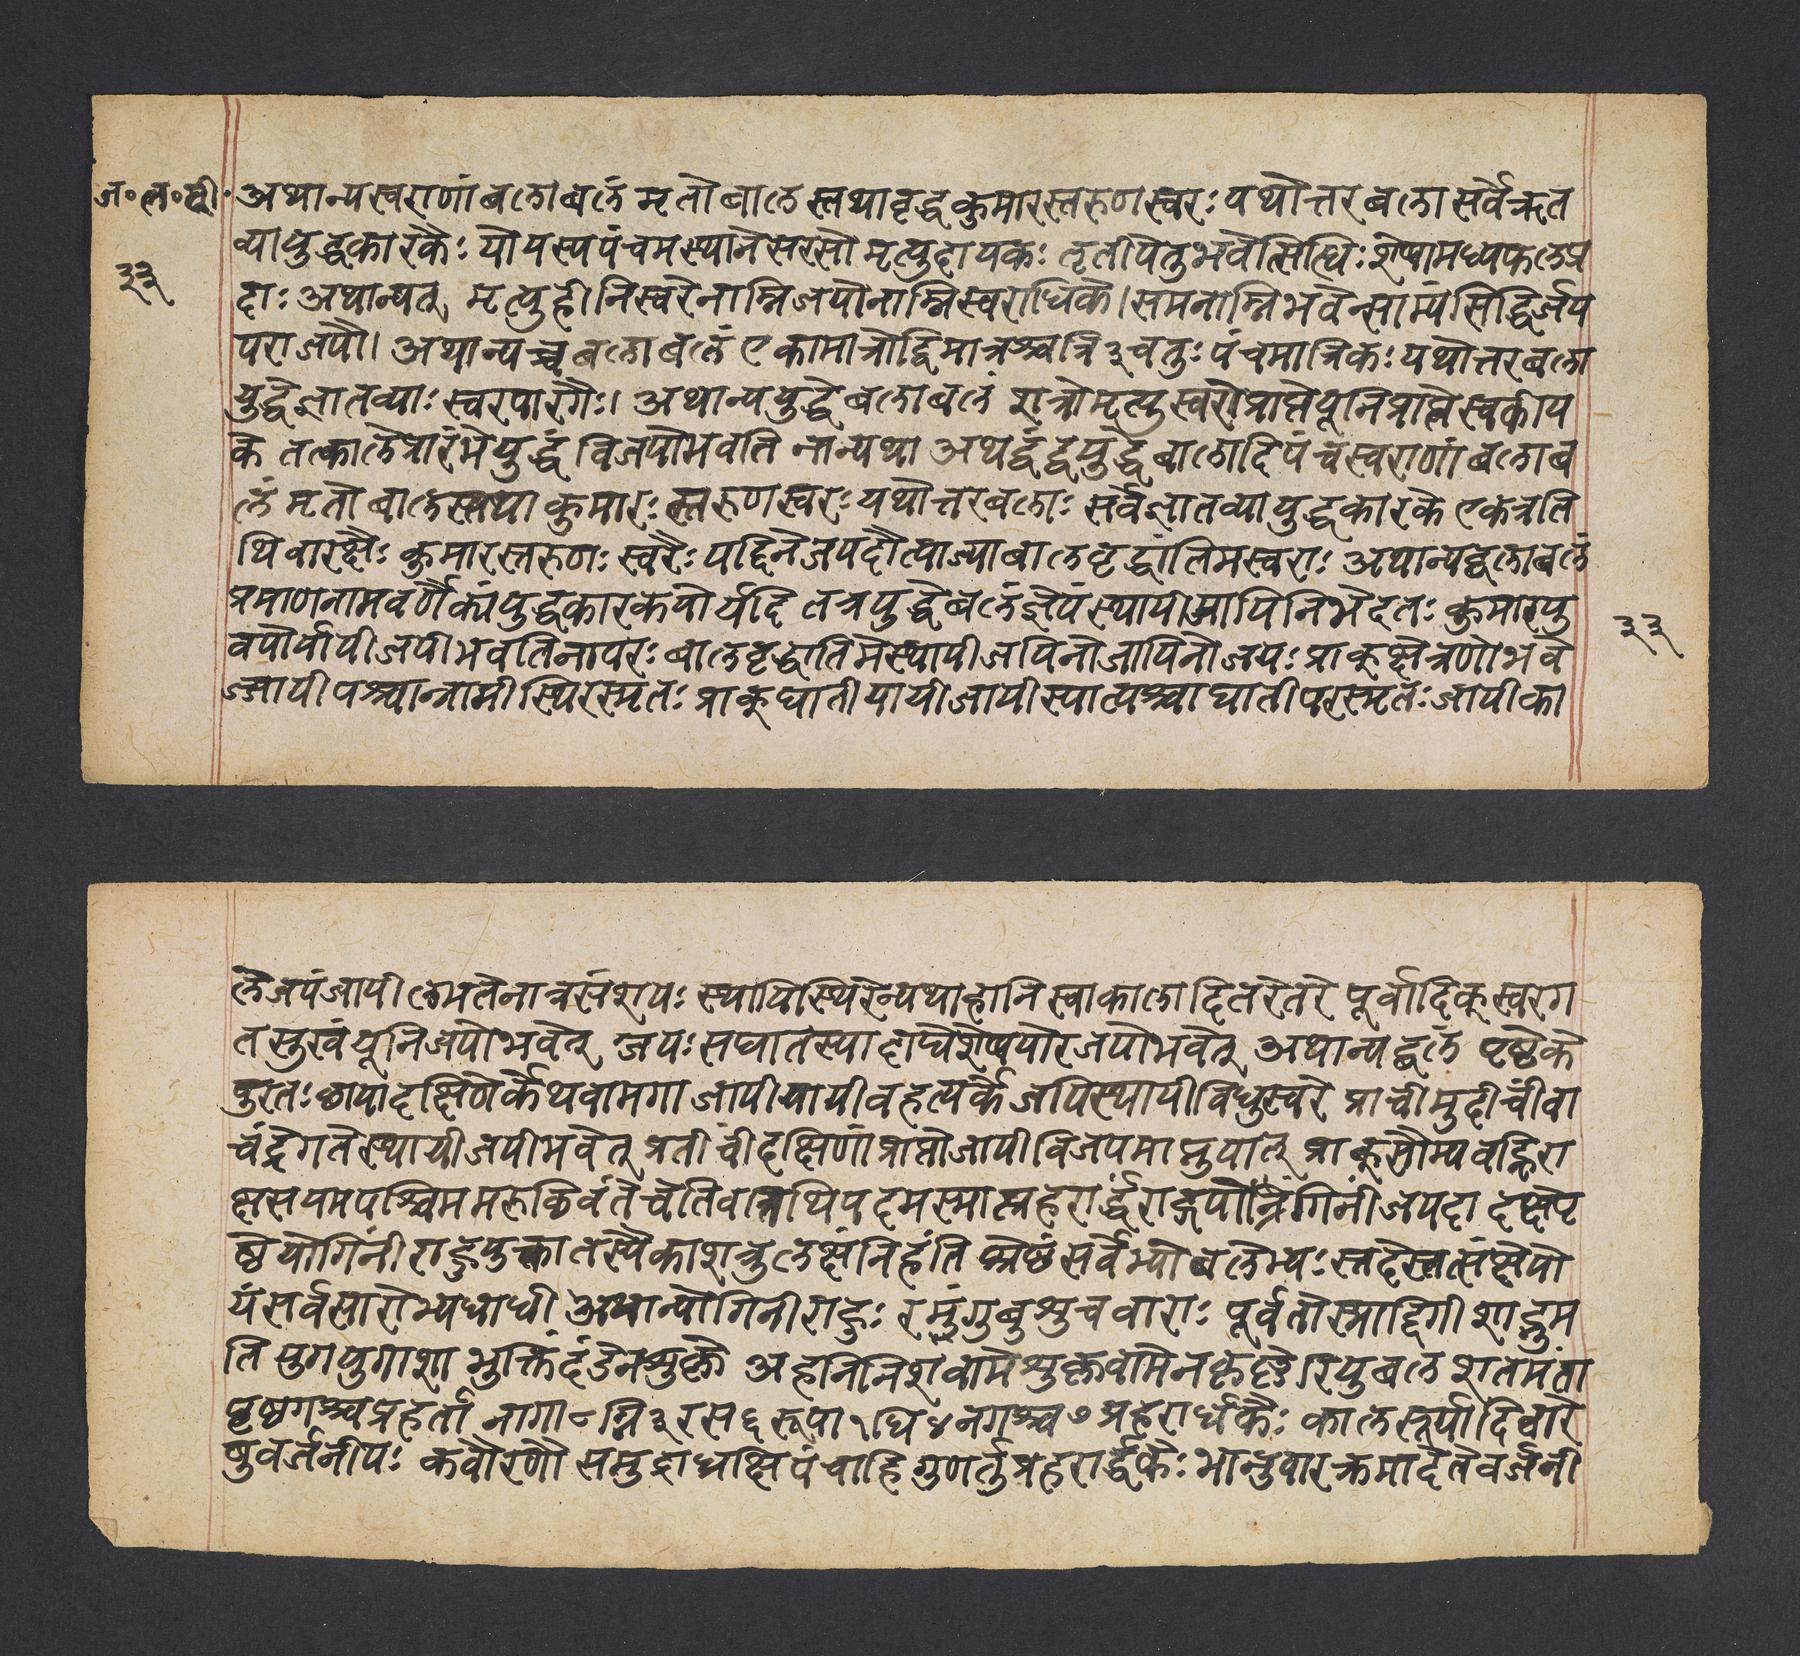 ज॰ल॰वी॰
अथान्यस्वराणांबलाबलं मृतोबालस्तथावृद्धकुमारस्तरुणस्वरः यथोत्तरबला सर्वेज्ञात
३३
व्यायुद्धकारकैः योयस्यपंचमस्थानेसस्वरो मृत्युदायकः तृतीयेतुभवेत्सिद्धिः शेषामध्यफलप्र
दाः अथान्यत् मृत्युर्हीनिस्वरेनाम्निजयोनाम्निस्वराधिके।समनाम्निभवेत्साम्यंसिद्धिर्जय
पराजयौ। अथान्यच्च बलाबलं एकामात्रोद्विमात्रश्चत्रि३चतुः पंचमात्रिकः यथोत्तरबला
युद्धेज्ञातव्याः स्वरपारगैः। अथान्ययुद्धेबलाबलं शत्रोमृत्युस्वरोप्राप्तेयूनिप्राप्तेस्वकीय
के तत्कालेप्रारंभेयुद्धं विजयोभवति नान्यथा अथद्वंद्वयुद्धेबालादिपंचस्वराणांबलाब
लं मृतोबालस्तथा कुमारः स्तरुणस्वरः यथोत्तरबलाः सर्वेज्ञातव्यायुद्धकारके एकत्रति
थिवारक्षैः कुमारस्तरुणः स्वरैः यद्दिनेजयदौत्याज्याबालवृद्धांतिमस्वराः अथान्यद्बलाबलं
प्रमाणनामवर्णैकांयुद्धकारकयोर्यदि तत्रयुद्धेबलंज्ञेयं स्थायीआपिनिभेदतः कुमारयु
३३
वयोर्यायीजयीभवतिनापरः बालवृद्धांतिमेस्थायीजयिनोजायिनोजयः प्राक्क्षेत्रणोभवे
ज्जायीपश्चान्नामीस्थिरस्मृतः प्राक्घातीयायीजायीस्यात्पश्चाघातीपरस्मृतः जायीका
लेजयंजायीलभतेनात्रसंशयः स्थायिस्थिरेन्यथाहानि स्वाकालादितरेतरे पूर्वादिक्स्वरग
तस्तुरवंयूनिजयोभवेत् जयः सघातस्यादाघेशेषयोरजयोभवेत् अथान्यद्बलं पृष्ठेके
पुरतः छायादक्षिणेर्केथवामगा जायीयायीवहत्यर्केजयिस्थायीविधुस्वरे प्राचीमुदीचींवा
चंद्रेगतेस्थायीजयीभवेत् प्रतीचींदक्षिणांप्राप्तोजायीविजयमाप्नुयात् प्राक्सौम्यवह्निरा
क्षसयमपश्चिममरुच्छिवंतेचेतिवान्नथिपदमस्मात्प्रहरार्द्धराज्ञयोगिनी जयदा दक्षपृ
ष्ठेयोगिनीराहुयुक्तातस्यैकाशत्रुलक्षंनिहंति श्रेष्ठंसर्वेभ्योबलेभ्यः स्तदेस्तत्संक्षेपो
यंसर्वसारोभ्यधाघी अथान्योगिनीराहुः रमुंगुबुशुचवाराः पूर्वतोस्माद्दिगीशाद्भ्रम
तियुगयुगाशाभुक्तिदंडेनशुक्ले अहनिनिशवामेशुक्लवामेनकृष्णे रिपुबल शतमंता
पृष्ठगश्चप्रहर्ता नागा८ग्नि३रस६रूपा१घि४नगश्च७प्रहरार्धकैः कालसूर्यादिवारे
षुवर्जनीयः कवौरणे समुद्राध्यक्षिपंचाहिगुणर्तुप्रहरार्द्धकैः भानुवारक्रमादेतेवर्जनी